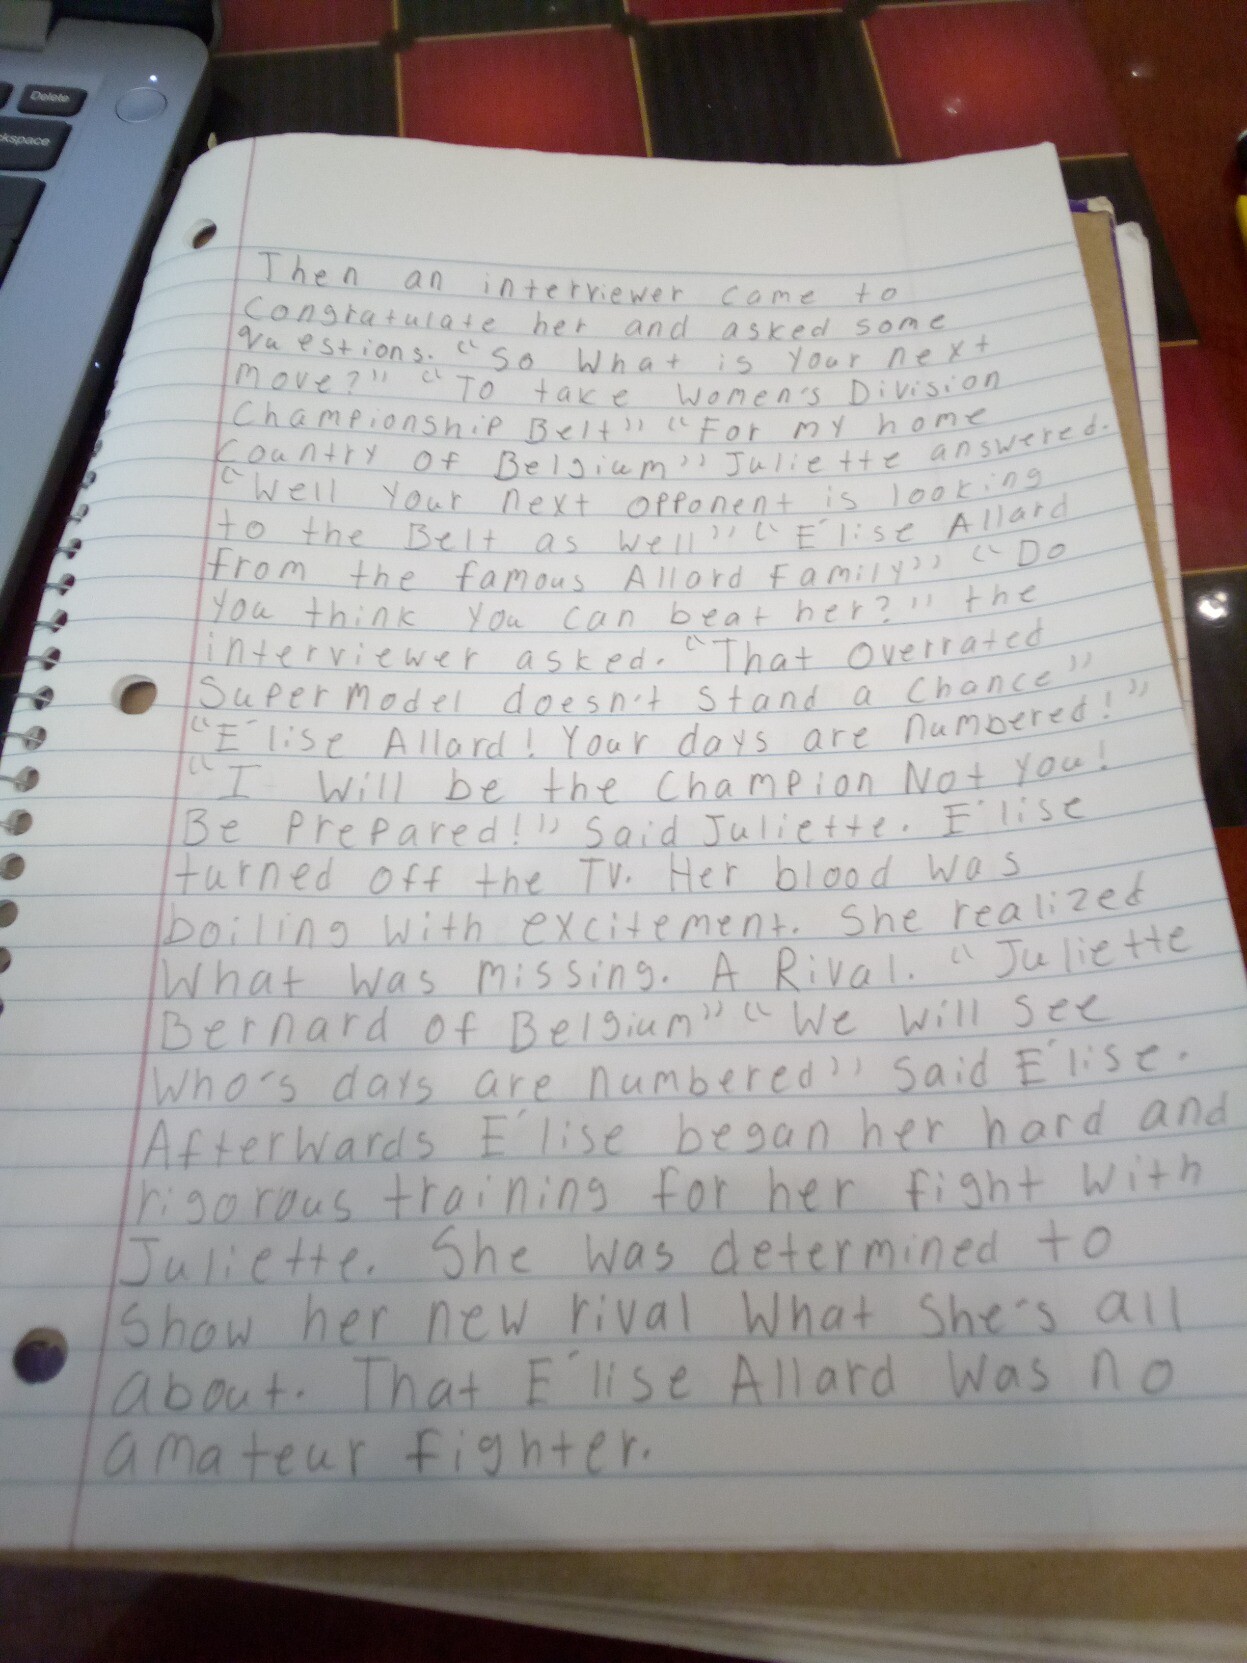 Delete
ckspace
Then an interviewer came to
Congratulate her and asked some
questions. "So What is Your next
move?" "To take Women's Division
Championship Belt" "For my home
Country of Belgium" Juliette answered.
"Well Your next opponent is looking
to the Belt as well" "E'lise Allard
from the famous Allard Family" "Do
You think you can beat her?" the
interviewer asked. "That Overrated
Supermodel doesn't stand a Chance"
"E'lise Allard! Your days are numbered!"
"I Will be the Champion Not you!
Be Prepared!" Said Juliette. E'lise
turned off the TV. Her blood was
boiling with excitement. She realized
What was missing. A Rival. "Juliette
Bernard of Belgium" "We will see
Who's days are numbered" Said E'lise.
Afterwards E'lise began her hard and
rigorous training for her fight with
Juliette. She was determined to
Show her new rival What She's all
about. That E'lise Allard Was no
amateur fighter.